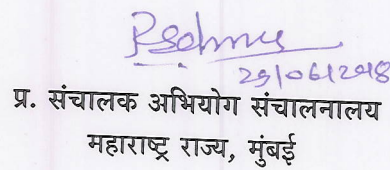 29/06/2018
प्र. संचालक अभियोग संचालनालय
महाराष्ट्र राज्य, मुंबई